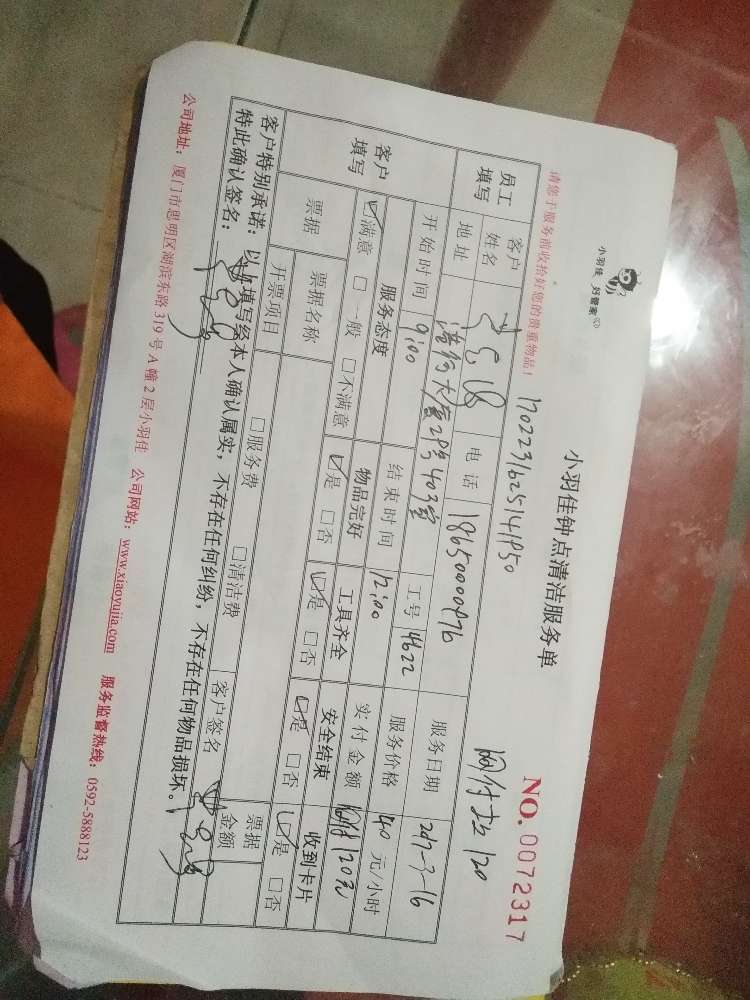 小羽佳 好管家
小羽佳钟点清洁服务单
NO. 0072317
请您于服务前收拾好您的贵重物品！
1702231625141950
网付 120
员工填写
客户姓名
电话 18650000976
服务日期 2017-3-16
地址 大厦29号403室
工号 4622
服务价格 40 元/小时
客户填写
开始时间 9:00
结束时间 12:00
实付金额 网付120元
服务态度
物品完好
工具齐全
安全结束
收到卡片
☑满意 □一般 □不满意
☑是 □否
☑是 □否
☑是 □否
☑是 □否
票据
票据名称
票据金额
开票项目
□服务费 □清洁费
客户签名
客户特别承诺：以上填写经本人确认属实，不存在任何纠纷，不存在任何物品损坏。
特此确认签名：
公司地址：厦门市思明区湖滨东路 319 号 A 幢 2 层小羽佳 公司网站：www.xiaoyujia.com 服务监督热线：0592-5888123